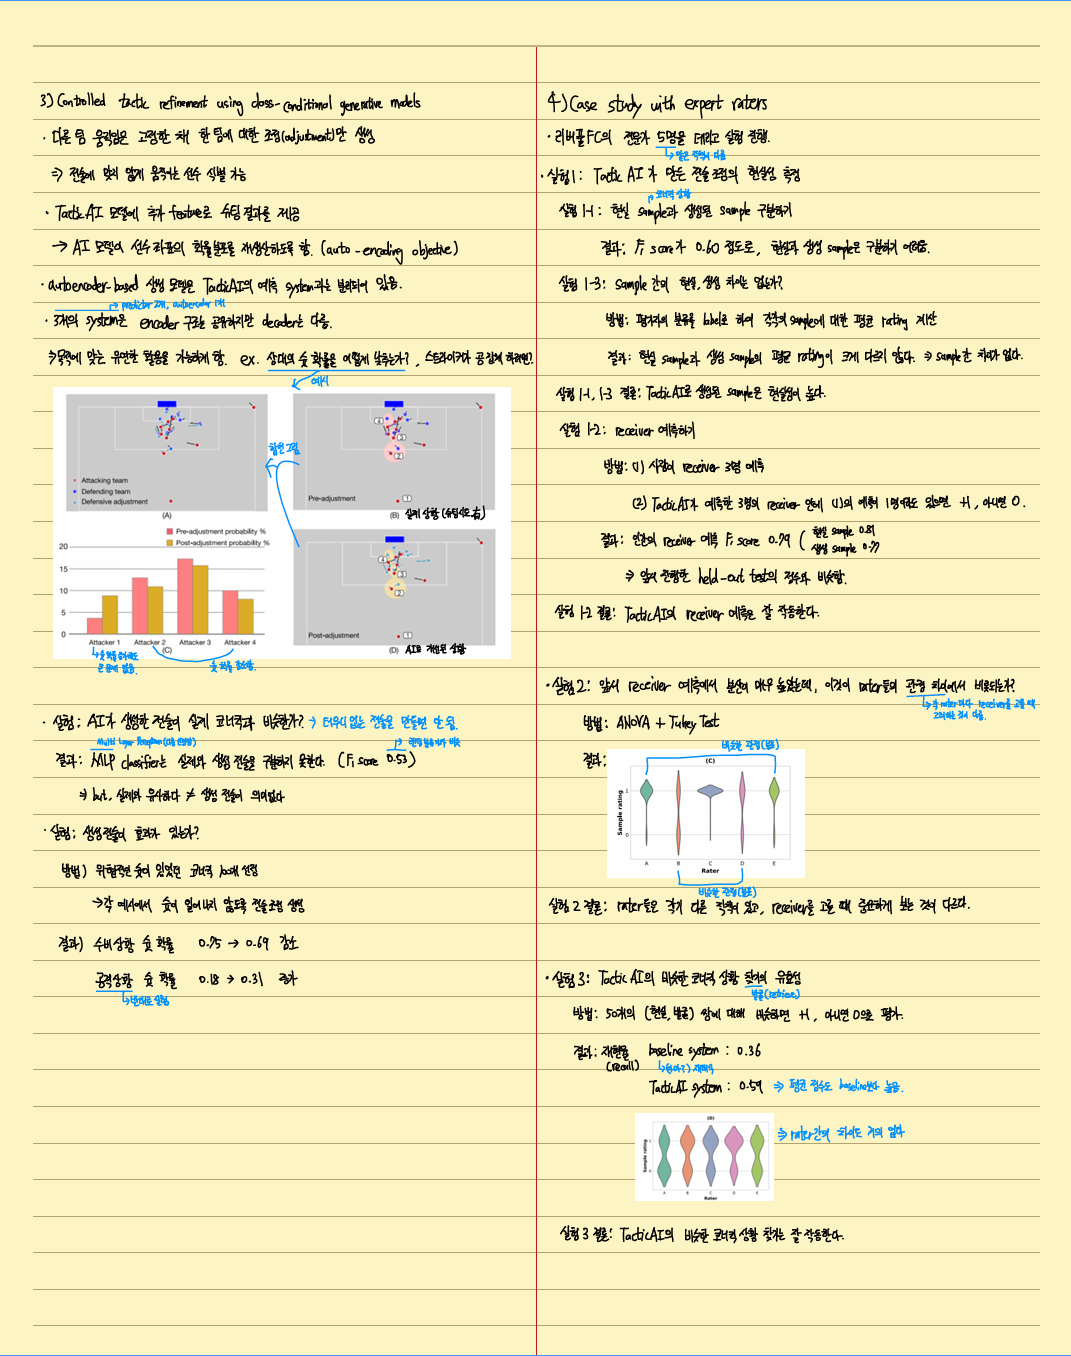 3) Controlled tactic refinement using class-conditional generative models
· 다른 팀 움직임은 고정한 채 한 팀에 대한 조정(adjustment)만 생성
⇒ 전술에 맞지 않게 움직이는 선수 식별 가능
· TacticAI 모델에 추가 feature로 슈팅 결과를 제공
→ AI 모델이 선수 좌표의 확률분포를 재생산하도록 함. (auto-encoding objective)
· autoencoder-based 생성 모델은 TacticAI의 예측 system과는 분리되어 있음.
↳ predictor 2개, autoencoder 1개
· 3개의 system은 encoder 구조는 공유하지만 decoder는 다름.
⇒ 목적에 맞는 유연한 활용을 가능하게 함. ex. 상대의 슛 확률은 어떻게 낮추는가?, 스트라이커가 공 잡게 하려면?
예시
합친 그림
Attacking team
Defending team
Defensive adjustment
(A)
Pre-adjustment
(B) 실제 상황 (슈팅시도 有)
Pre-adjustment probability %
Post-adjustment probability %
20
15
10
5
0
Attacker 1
Attacker 2
Attacker 3
Attacker 4
(C)
Post-adjustment
(D) AI로 개선된 상황
1
2
3
4
1
2
3
4
슛 확률 감소함.
· 실험: AI가 생성한 전술이 실제 코너킥과 비슷한가? → 터무니없는 전술을 만들면 안 됨.
Multi Layer Perceptron
결과: MLP classifier는 실제와 생성 전술을 구분하지 못한다. (F₁ score 0.53)
⇒ but, 실제와 유사하다 ≠ 생성 전술이 의미없다
· 실험: 생성전술이 효과가 있는가?
방법) 위협적인 슛이 있었던 코너킥 100개 선정
→ 각 예시에서 슛이 일어나지 않도록 전술 조정 생성
결과) 수비상황 슛 확률 0.75 → 0.69 감소
공격상황 슛 확률 0.18 → 0.31 증가
↳ 반대로 실험
4) Case study with expert raters
· 리버풀FC의 전문가 5명을 데리고 실험 진행.
↳ 맡은 직책이 다름
· 실험1: TacticAI가 만든 전술 조정의 현실성 측정
코너킥 상황
실험 1-1: 현실 sample과 생성된 sample 구분하기
결과: F₁ score가 0.60 정도로, 현실과 생성 sample은 구분하기 어려움.
실험 1-3: sample 간에 현실, 생성 차이는 없는가?
방법: 평가자의 분류를 label로 하여 각각의 sample에 대한 평균 rating 계산
결과: 현실 sample과 생성 sample의 평균 rating이 크게 다르지 않다. ⇒ sample간 차이가 없다.
실험 1-1, 1-3 결론: TacticAI로 생성된 sample은 현실성이 높다.
실험 1-2: receiver 예측하기
방법: (1) 사람이 receiver 3명 예측
(2) TacticAI가 예측한 3명의 receiver 안에 (1)의 예측이 1명이라도 있으면 +1, 아니면 0.
결과: 인간의 receiver 예측 F₁ score 0.79 (현실 sample 0.81
생성 sample 0.77
⇒ 앞서 진행한 held-out test의 점수와 비슷함.
실험 1-2 결론: TacticAI의 receiver 예측은 잘 작동한다.
· 실험2: 앞서 receiver 예측에서 분산이 매우 높았는데, 이것이 rater들의 관점 차이에서 비롯되는가?
↳ 각 rater마다 receiver를 고를 때
고려하는 것이 다름.
방법: ANOVA + Tukey Test
비슷한 관점(분포)
결과:
(C)
Sample rating
1
0
A B C D E
Rater
비슷한 관점(분포)
실험 2 결론: rater들은 각기 다른 직책이 있고, receiver를 고를 때 중요하게 보는 것이 다르다.
· 실험3: TacticAI의 비슷한 코너킥 상황 찾기의 유효성
발굴(retrieve)
방법: 50개의 (현실, 발굴) 쌍에 대해 비슷하면 +1, 아니면 0으로 평가.
결과: 재현율 baseline system : 0.36
(recall)
TacticAI system : 0.59 ⇒ 평균 점수도 baseline보다 높음.
(D)
Sample rating
1
0
A B C D E
Rater
⇒ rater간의 차이도 거의 없다
실험 3 결론: TacticAI의 비슷한 코너킥 상황 찾기는 잘 작동한다.